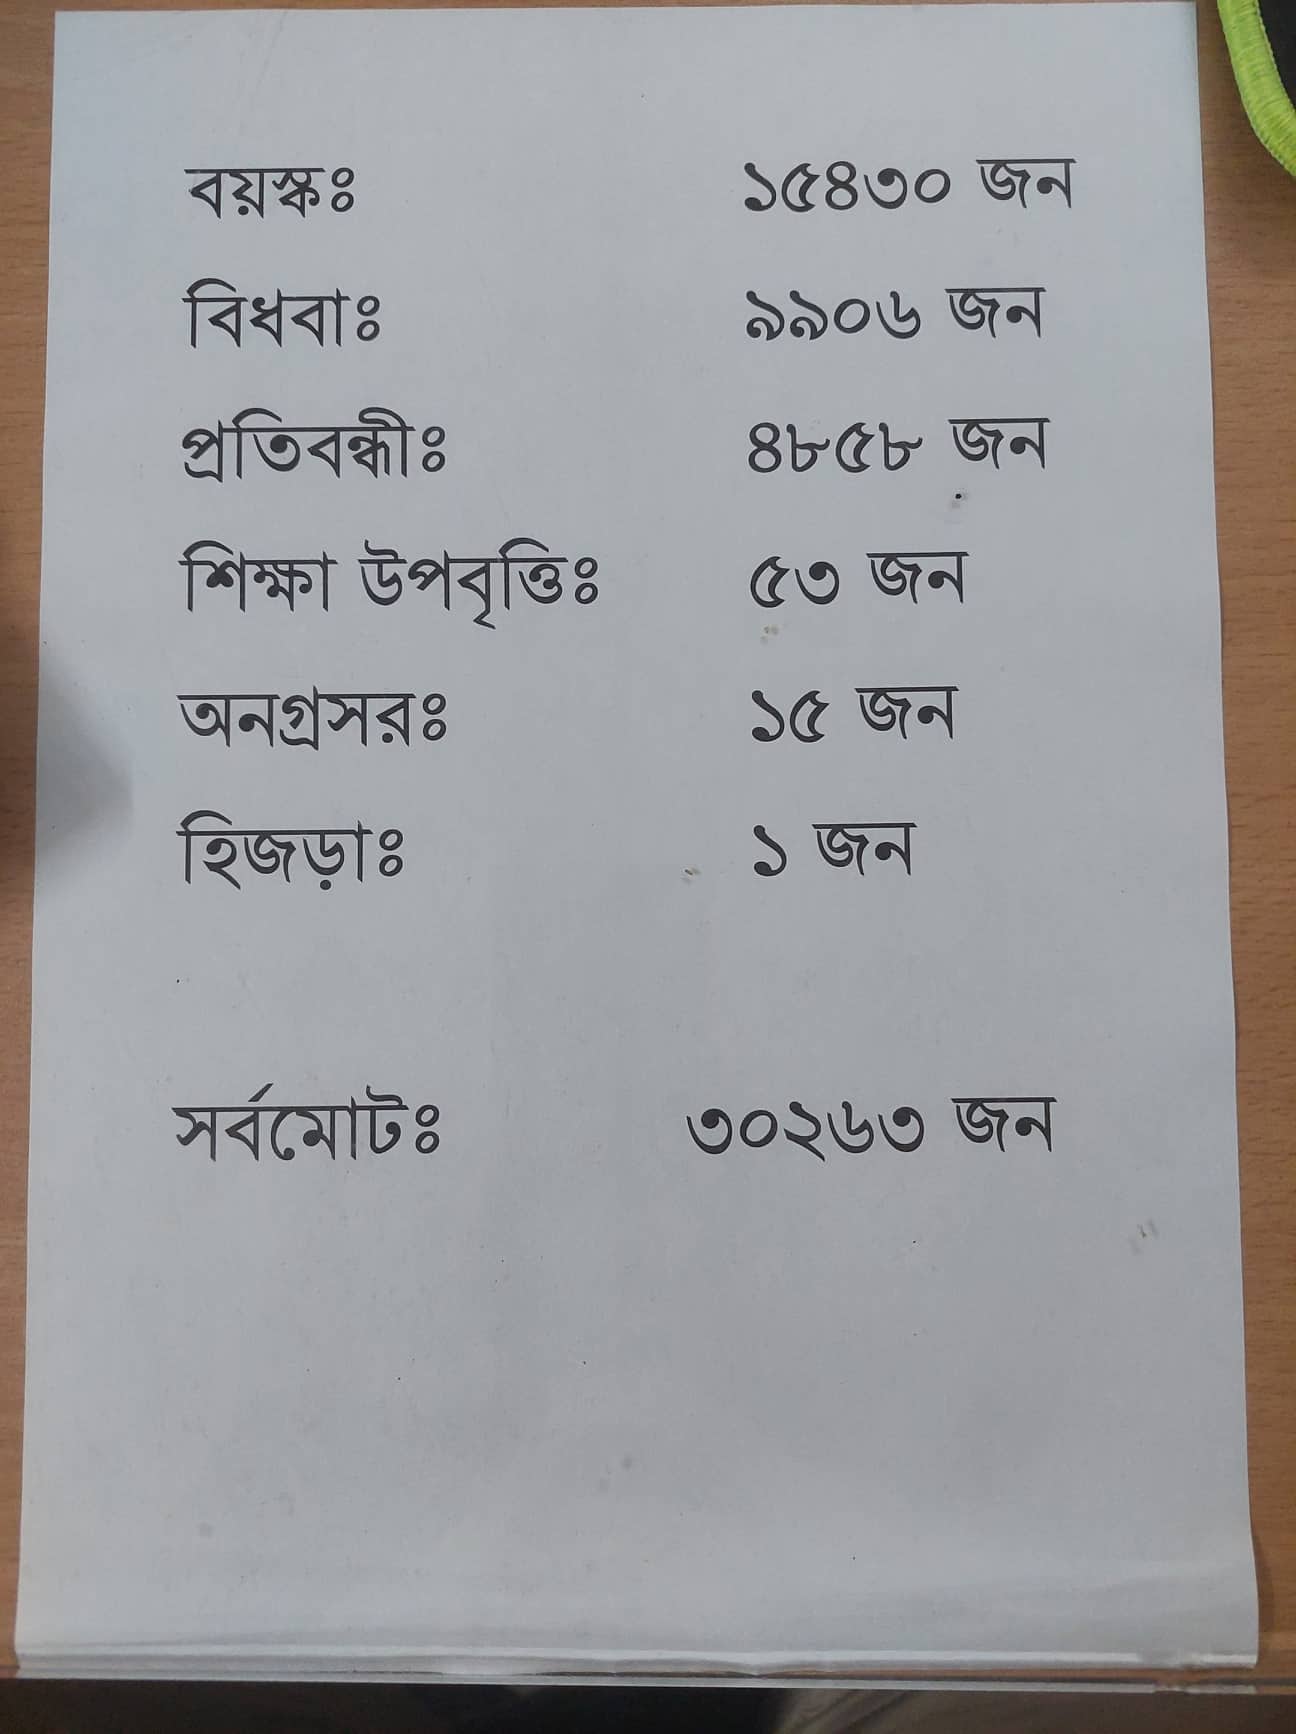 বয়স্কঃ ১৫৪৩০ জন
বিধবাঃ ৯৯০৬ জন
প্রতিবন্ধীঃ ৪৮৫৮ জন
শিক্ষা উপবৃত্তিঃ ৫৩ জন
অনগ্রসরঃ ১৫ জন
হিজড়াঃ ১ জন
সর্বমোটঃ ৩০২৬৩ জন